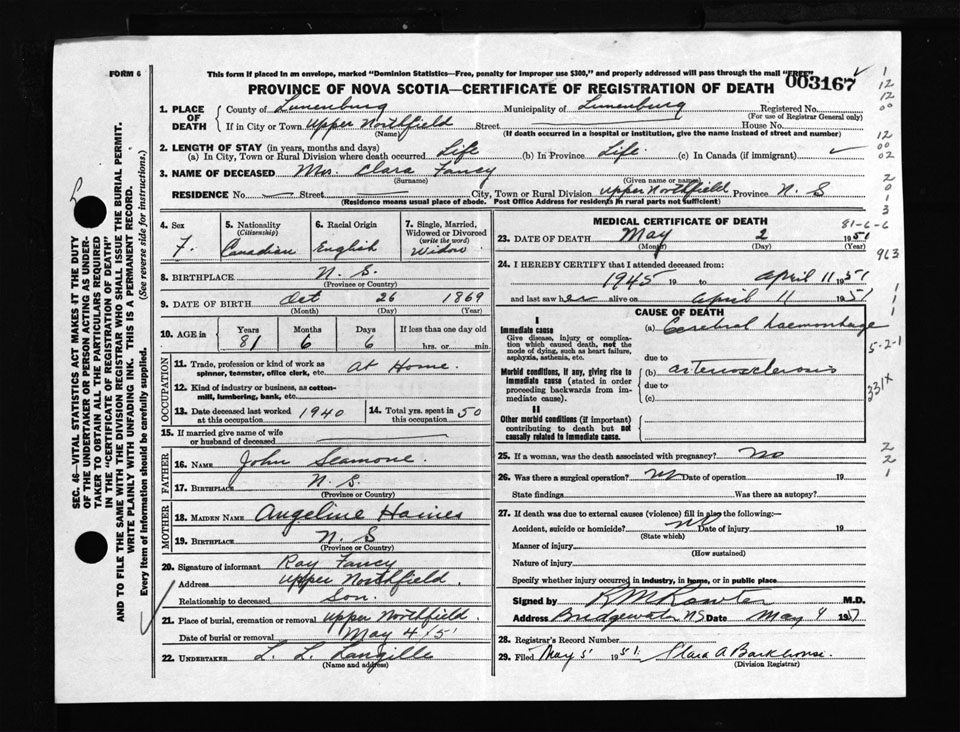 FORM 6
This form if placed in an envelope, marked "Dominion Statistics—Free, penalty for improper use $300," and properly addressed will pass through the mail "FREE"
003167
PROVINCE OF NOVA SCOTIA—CERTIFICATE OF REGISTRATION OF DEATH
1. PLACE OF DEATH
County of Lunenburg Municipality of Lunenburg Registered No.
(For use of Registrar General only)
If in City or Town Upper Northfield Street House No.
(Name) (If death occurred in a hospital or institution, give the name instead of street and number)
2. LENGTH OF STAY (in years, months and days)
(a) In City, Town or Rural Division where death occurred Life (b) In Province Life. (c) In Canada (if immigrant)
3. NAME OF DECEASED Mrs. Clara Fancy
(Surname) (Given name or names)
RESIDENCE No. Street City, Town or Rural Division Upper Northfield Province N. S
(Residence means usual place of abode. Post Office Address for residents in rural parts not sufficient)
4. Sex
F.
5. Nationality
(Citizenship)
Canadian
6. Racial Origin
English
7. Single, Married, Widowed or Divorced
(write the word)
Widow
8. BIRTHPLACE N. S.
(Province or Country)
9. DATE OF BIRTH Oct 26 1869
(Month) (Day) (Year)
10. AGE in Years Months Days If less than one day old
81 6 6 hrs. or min.
OCCUPATION
11. Trade, profession or kind of work as spinner, teamster, office clerk, etc. At Home.
12. Kind of industry or business, as cotton-mill, lumbering, bank, etc.
13. Date deceased last worked at this occupation 1940
14. Total yrs. spent in this occupation 50
15. If married give name of wife or husband of deceased
FATHER
16. NAME John Seamone.
17. BIRTHPLACE N. S.
(Province or Country)
MOTHER
18. MAIDEN NAME Angeline Haines
19. BIRTHPLACE N. S
(Province or Country)
20. Signature of informant Ray Fancy
Address Upper Northfield.
Relationship to deceased Son.
21. Place of burial, cremation or removal Upper Northfield.
Date of burial or removal May 4/51
22. UNDERTAKER L. L. Langille
(Name and address)
MEDICAL CERTIFICATE OF DEATH
81-6-6
23. DATE OF DEATH May 2 1951
(Month) (Day) (Year)
24. I HEREBY CERTIFY that I attended deceased from:
1945 19 to April 11 1951
and last saw her alive on April 11 1951
CAUSE OF DEATH
I
Immediate cause
Give disease, injury or complication which caused death, not the mode of dying, such as heart failure, asphyxia, asthenia, etc.
(a) Cerebral haemorrhage
due to
Morbid conditions, if any, giving rise to immediate cause (stated in order proceeding backwards from immediate cause).
(b) arteriosclerosis
due to
(c)
II
Other morbid conditions (if important) contributing to death but not causally related to immediate cause.
25. If a woman, was the death associated with pregnancy? No
26. Was there a surgical operation? No Date of operation 19
State findings Was there an autopsy?
27. If death was due to external causes (violence) fill in also the following:—
Accident, suicide or homicide? no Date of injury 19
(State which)
Manner of injury
(How sustained)
Nature of injury
Specify whether injury occurred in industry, in home, or in public place
Signed by M.D.
Address Bridgewater NS Date May 4 1951
28. Registrar's Record Number
29. Filed May 5 1951. Clara A Barkhouse.
(Division Registrar)
SEC. 46—VITAL STATISTICS ACT MAKES IT THE DUTY
OF THE UNDERTAKER OR PERSON ACTING AS UNDER-
TAKER TO OBTAIN ALL THE PARTICULARS REQUIRED
IN THE "CERTIFICATE OF REGISTRATION OF DEATH"
AND TO FILE THE SAME WITH THE DIVISION REGISTRAR WHO SHALL ISSUE THE BURIAL PERMIT.
WRITE PLAINLY WITH UNFADING INK. THIS IS A PERMANENT RECORD.
Every item of information should be carefully supplied. (See reverse side for instructions.)
12
12
00
12
00
02
2
0
1
3
963
1
1
1
5-2-1
331X
2
2
1